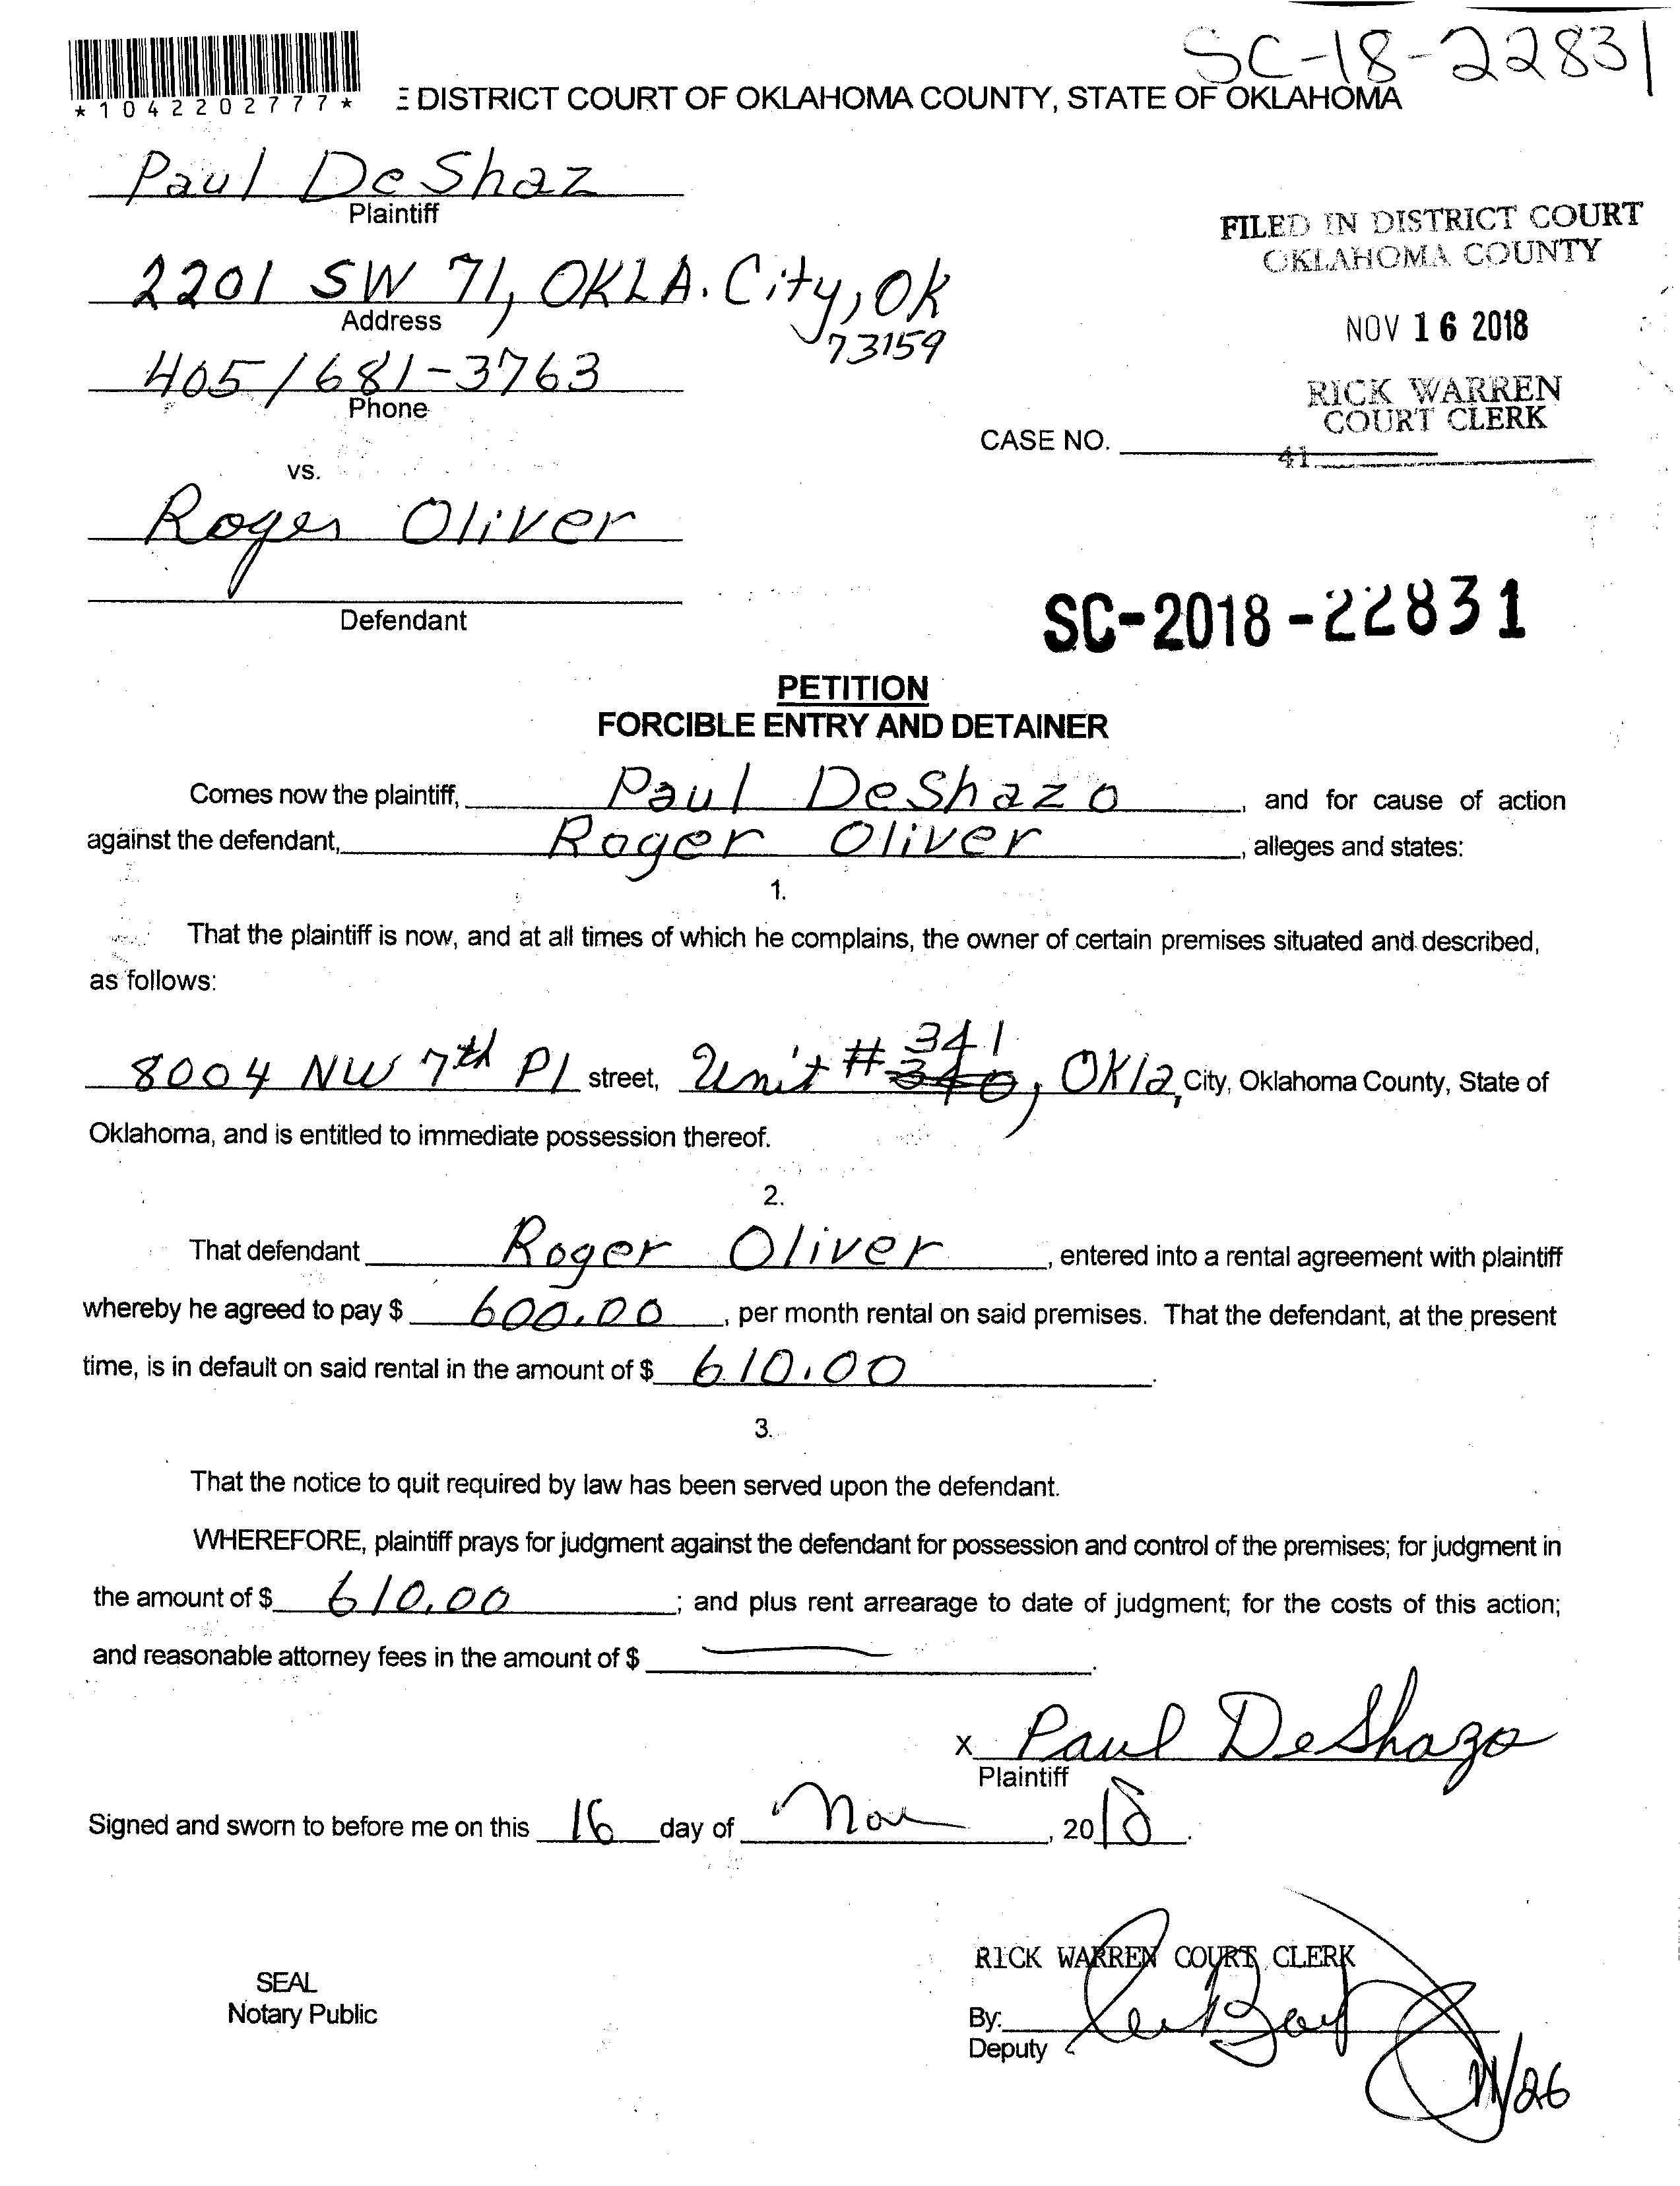 SC-18-22831
*1042202777*
E DISTRICT COURT OF OKLAHOMA COUNTY, STATE OF OKLAHOMA
Paul DeShaz
Plaintiff
FILED IN DISTRICT COURT
OKLAHOMA COUNTY
2201 SW 71, OKLA. City, OK
Address
73159
NOV 16 2018
405/681-3763
Phone
RICK WARREN
COURT CLERK
CASE NO.
41
vs.
Roger Oliver
Defendant
SC-2018-22831
PETITION
FORCIBLE ENTRY AND DETAINER
Comes now the plaintiff, Paul DeShazo, and for cause of action
against the defendant, Roger Oliver, alleges and states:
1.
That the plaintiff is now, and at all times of which he complains, the owner of certain premises situated and described,
as follows:
341
8004 NW 7th Pl street, Unit # 340, Okla, City, Oklahoma County, State of
Oklahoma, and is entitled to immediate possession thereof.
2.
That defendant Roger Oliver, entered into a rental agreement with plaintiff
whereby he agreed to pay $ 600.00, per month rental on said premises. That the defendant, at the present
time, is in default on said rental in the amount of $ 610.00.
3.
That the notice to quit required by law has been served upon the defendant.
WHEREFORE, plaintiff prays for judgment against the defendant for possession and control of the premises; for judgment in
the amount of $ 610.00; and plus rent arrearage to date of judgment; for the costs of this action;
and reasonable attorney fees in the amount of $ —.
X Paul DeShazo
Plaintiff
Signed and sworn to before me on this 16 day of Nov, 2018.
RICK WARREN COURT CLERK
SEAL
Notary Public
By:
Deputy
11/26